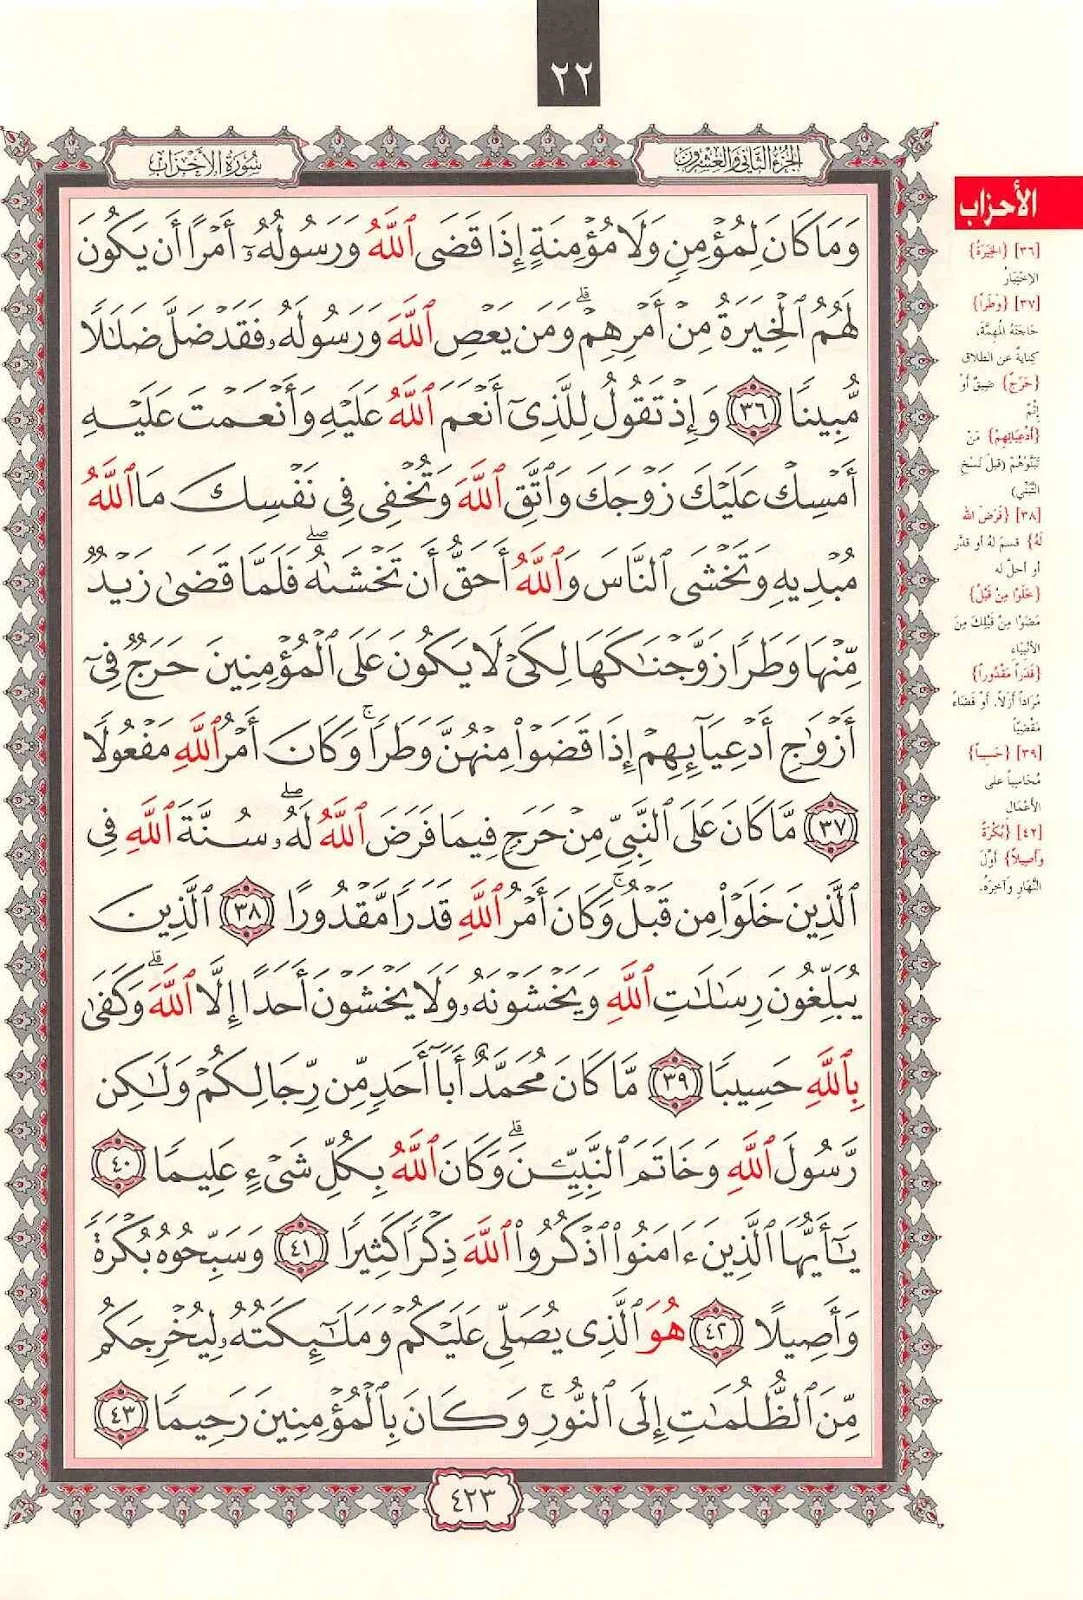 ٢٢
الجزء الثاني والعشرون
سورة الأحزاب
وَمَا كَانَ لِمُؤْمِنٍ وَلَا مُؤْمِنَةٍ إِذَا قَضَى ٱللَّهُ وَرَسُولُهُۥٓ أَمْرًا أَن يَكُونَ
لَهُمُ ٱلْخِيَرَةُ مِنْ أَمْرِهِمْ ۗ وَمَن يَعْصِ ٱللَّهَ وَرَسُولَهُۥ فَقَدْ ضَلَّ ضَلَٰلًا
مُّبِينًا ٣٦ وَإِذْ تَقُولُ لِلَّذِىٓ أَنْعَمَ ٱللَّهُ عَلَيْهِ وَأَنْعَمْتَ عَلَيْهِ
أَمْسِكْ عَلَيْكَ زَوْجَكَ وَٱتَّقِ ٱللَّهَ وَتُخْفِى فِى نَفْسِكَ مَا ٱللَّهُ
مُبْدِيهِ وَتَخْشَى ٱلنَّاسَ وَٱللَّهُ أَحَقُّ أَن تَخْشَىٰهُ ۖ فَلَمَّا قَضَىٰ زَيْدٌ
مِّنْهَا وَطَرًا زَوَّجْنَٰكَهَا لِكَىْ لَا يَكُونَ عَلَى ٱلْمُؤْمِنِينَ حَرَجٌ فِىٓ
أَزْوَٰجِ أَدْعِيَآئِهِمْ إِذَا قَضَوْا۟ مِنْهُنَّ وَطَرًا ۚ وَكَانَ أَمْرُ ٱللَّهِ مَفْعُولًا
٣٧ مَّا كَانَ عَلَى ٱلنَّبِىِّ مِنْ حَرَجٍ فِيمَا فَرَضَ ٱللَّهُ لَهُۥ ۖ سُنَّةَ ٱللَّهِ فِى
ٱلَّذِينَ خَلَوْا۟ مِن قَبْلُ ۚ وَكَانَ أَمْرُ ٱللَّهِ قَدَرًا مَّقْدُورًا ٣٨ ٱلَّذِينَ
يُبَلِّغُونَ رِسَٰلَٰتِ ٱللَّهِ وَيَخْشَوْنَهُۥ وَلَا يَخْشَوْنَ أَحَدًا إِلَّا ٱللَّهَ ۗ وَكَفَىٰ
بِٱللَّهِ حَسِيبًا ٣٩ مَّا كَانَ مُحَمَّدٌ أَبَآ أَحَدٍ مِّن رِّجَالِكُمْ وَلَٰكِن
رَّسُولَ ٱللَّهِ وَخَاتَمَ ٱلنَّبِيِّـۧنَ ۗ وَكَانَ ٱللَّهُ بِكُلِّ شَىْءٍ عَلِيمًا ٤٠
يَٰٓأَيُّهَا ٱلَّذِينَ ءَامَنُوا۟ ٱذْكُرُوا۟ ٱللَّهَ ذِكْرًا كَثِيرًا ٤١ وَسَبِّحُوهُ بُكْرَةً
وَأَصِيلًا ٤٢ هُوَ ٱلَّذِى يُصَلِّى عَلَيْكُمْ وَمَلَٰٓئِكَتُهُۥ لِيُخْرِجَكُم
مِّنَ ٱلظُّلُمَٰتِ إِلَى ٱلنُّورِ ۚ وَكَانَ بِٱلْمُؤْمِنِينَ رَحِيمًا ٤٣
٤٢٣
الأحزاب
[٣٦] {الخِيَرَةُ}
الاخْتِيَارُ
[٣٧] {وَطَراً}
حَاجَتَهُ المُهِمَّةَ،
كِنايةٌ عن الطلاق
{حَرَجٌ} ضِيقٌ أَوْ
إِثْمٌ
{أَدْعِيَائِهِمْ} مَنْ
تَبَنَّوْهُمْ (قبلَ نَسْخِ
التَّبَنِّي)
[٣٨] {فَرَضَ الله
لَهُ} قسمَ لهُ أو قدَّرَ
أو أحلَّ له
{خَلَوْا مِنْ قَبْلُ}
مَضَوْا مِنْ قَبْلِكَ مِنَ
الأنْبِيَاء
{قَدَراً مَقْدُوراً}
مُرَاداً أَزَلاً، أَوْ قَضَاءً
مَقْضِيّاً
[٣٩] {حَسِيباً}
مُحَاسِباً على
الأَعْمَالِ
[٤٢] {بُكْرَةً
وَأَصِيلاً} أَوَّلَ
النَّهَارِ وَآخِرَهُ.